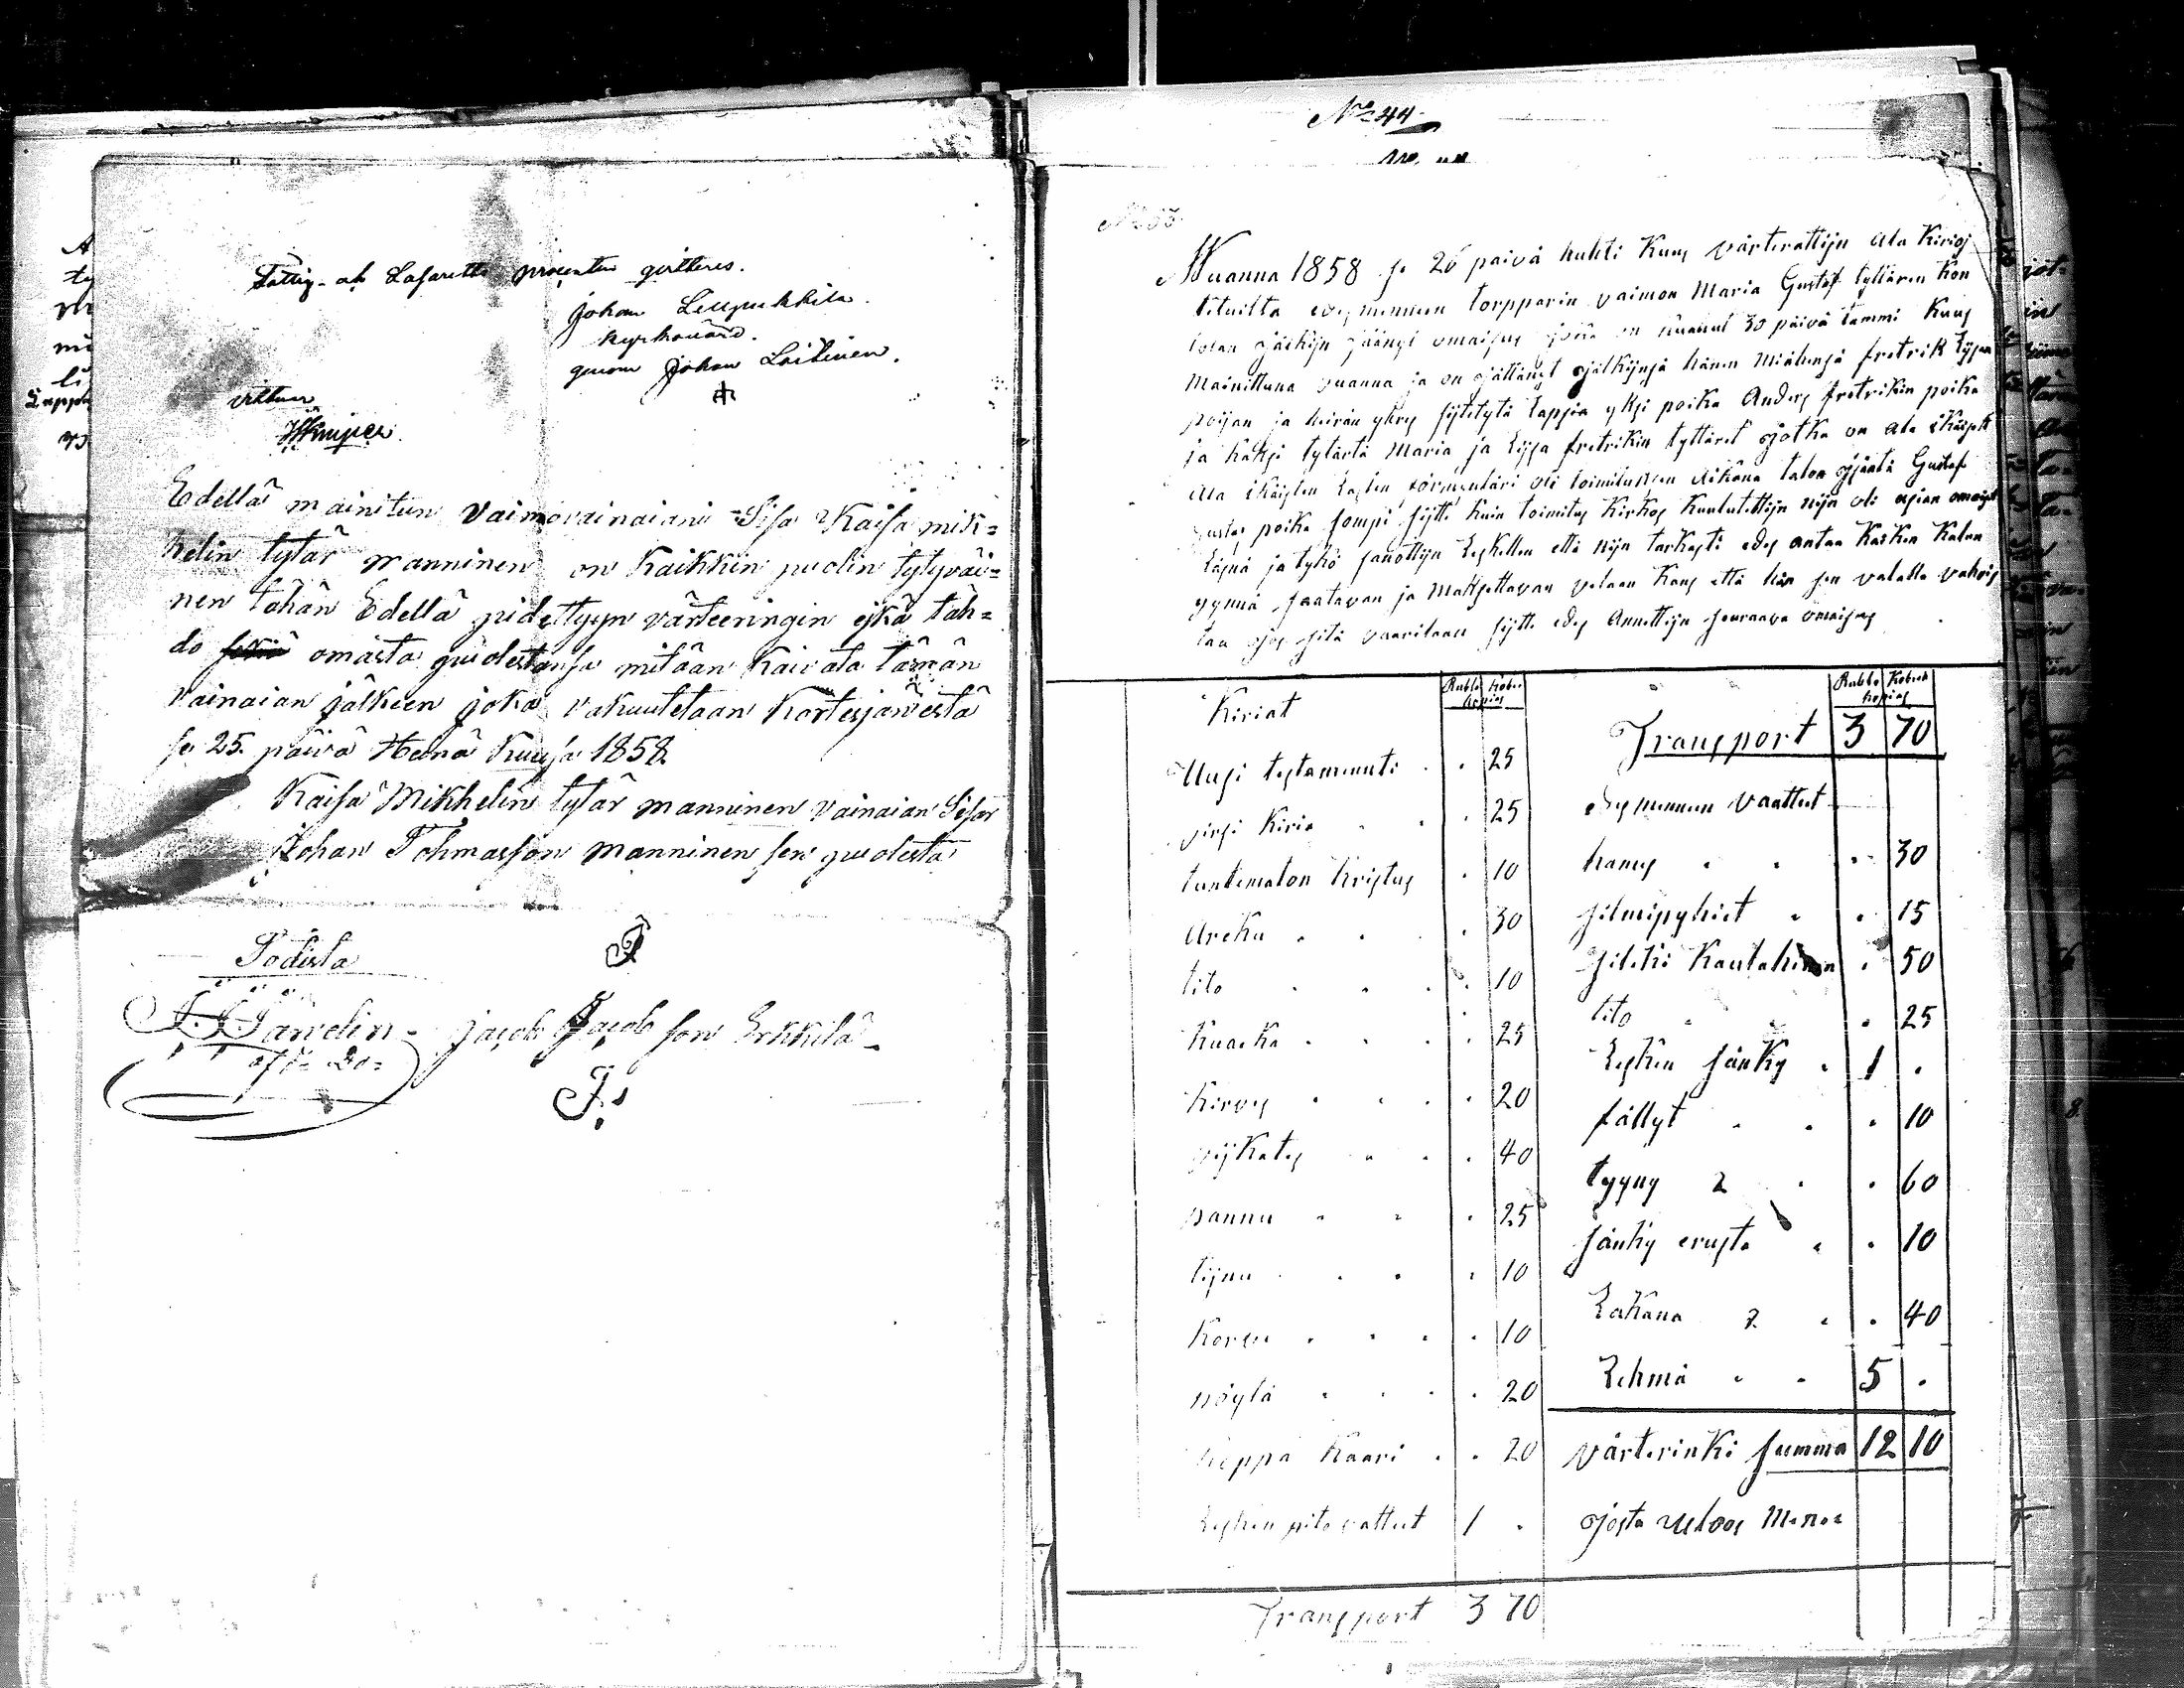 Fattig- och Lasaretts procenten qvitteres.
Johan Leupukkila.
kyrkovärd.
genom Johan Laitinen.
vittnar
Edellä mainitun vaimovainaian Sisa Kaisa mik=
kelin tytär manninen on kaikkiin puolin tytyväi=
nen tähän Edellä pidettyyn värteeringin eikä täh=
do omasta puolestansa mitään kaivata tämän
vainaian jälkeen joka vakuutetaan Kortesjärvestä
se 25. päivä Heinä kuusa 1858.
Kaisa Mikhelin tytär manninen vainaian Sisar
Johan Tohmasson manninen sen puolesta
Todista
Jacob Jacob son Erkkilä
No 44
No 55.
Wuanna 1858 se 26 päivä huhti kuus värterattijn ala kirioj
tetuilta edesmenneen torpparin vaimon Maria Gustaf tyttären Kon
tolan jälkijn jäänyt omaisus joka on kuallut 30 päivä tammi kuus
Mainittuna vuanna ja on jättänyt jälkijnsä hänen Miähensä fretrik
poijan ja heirän yhtes sijtetytä lapsia yksi poika Anders fretrikin poika
ja kaksi tytärtä Maria ja Lijsa fretrikin tyttäret jotka on ala ikäiset
Ala ikäisten lasten förmyntäri oli toimituksen aikana talon isäntä Gustaf
Gustaf poika Sompi sijtte kuin toimitus kirkos kuulutettijn nijn oli asian omaiset
läsnä ja tykö sanottijn Leskellen että nijn tarkasti edes antaa kaiken kalun
synnä saatavan ja Maksettavan velaan kans että hän sen valalla vahvis
taa jos sitä vaaritaan sijtte edes Annettijn seuraava omaisus
Kiriat
Rubla Kobek
hopias
Uusi testamentti . . 25
virsi kiria . . . 25
tuntematon kristus . 10
Arcku . . . 30
tito . . . . 10
Kuacka . . . . 25
Kirves . . . . 20
vijkates . . . 40
pannu . . . 25
tijnu . . . 10
Korvu . . . . 10
pöytä . . . . 20
keppa kaari . . 20
Lesken pito vatteet 1 .
Transport 3 70
Rubla Kobeek
hopias
Transport 3 70
edesmenneen vaatteet
hames . . . 30
silmipyhiet . . 15
silcki kaulahinen . 50
tito . . 25
Lesken sänky . 1 .
fällyt . . . 10
tyyny 2 . . 60
sänky erusta . . 10
Lakana 2 . . 40
Lehmä . . 5 .
värterinki summa 12 10
josta uuloos Mence